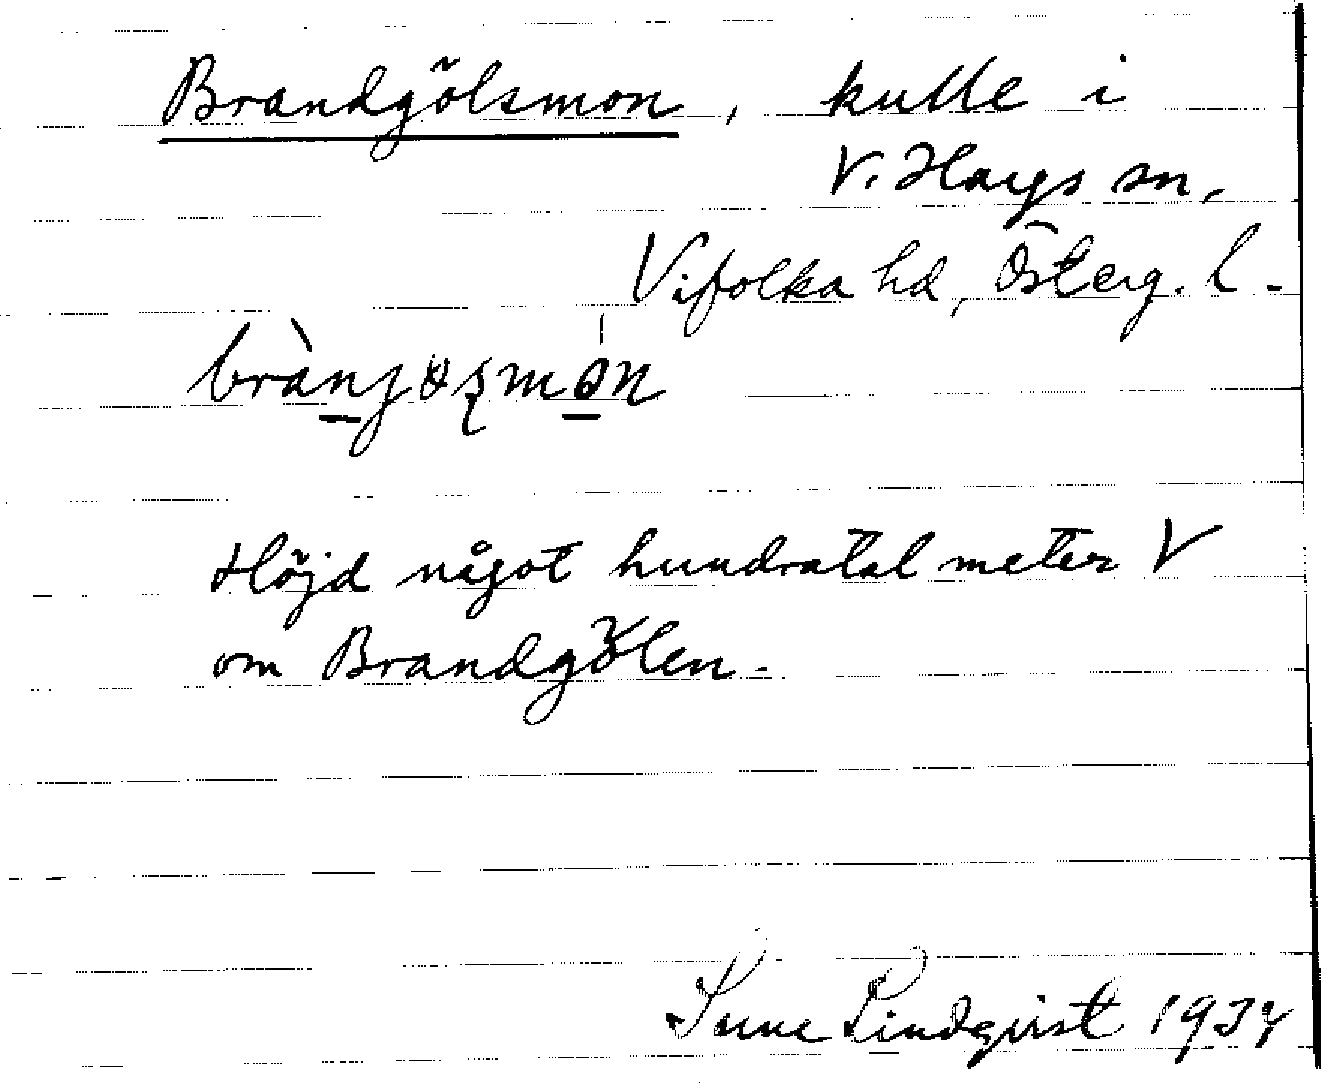 Brandgölsmon, kulle i
V. Hargs sn.
Vifolka hd, Österg. l.
Höjd något hundratal meter V
om Brandgölen.
Sune Lindqvist 1934